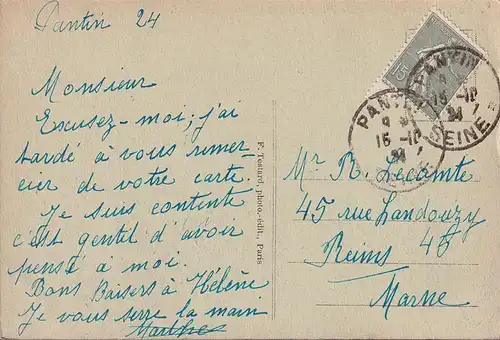 Pantin 24
Monsieur
Excusez-moi; j'ai
tardé à vous remer-
cier de votre carte.
Je suis contente
c'est gentil d'avoir
pensé à moi.
Bons Baisers à Hélène
Je vous serre la main
Marthe
F. Testard, photo-édit., Paris
15
PANTIN
15-10
24
SEINE
PANTIN
15-10
24
SEINE
Mr R. Lecomte
45 rue Landouzy 45
Reims
Marne